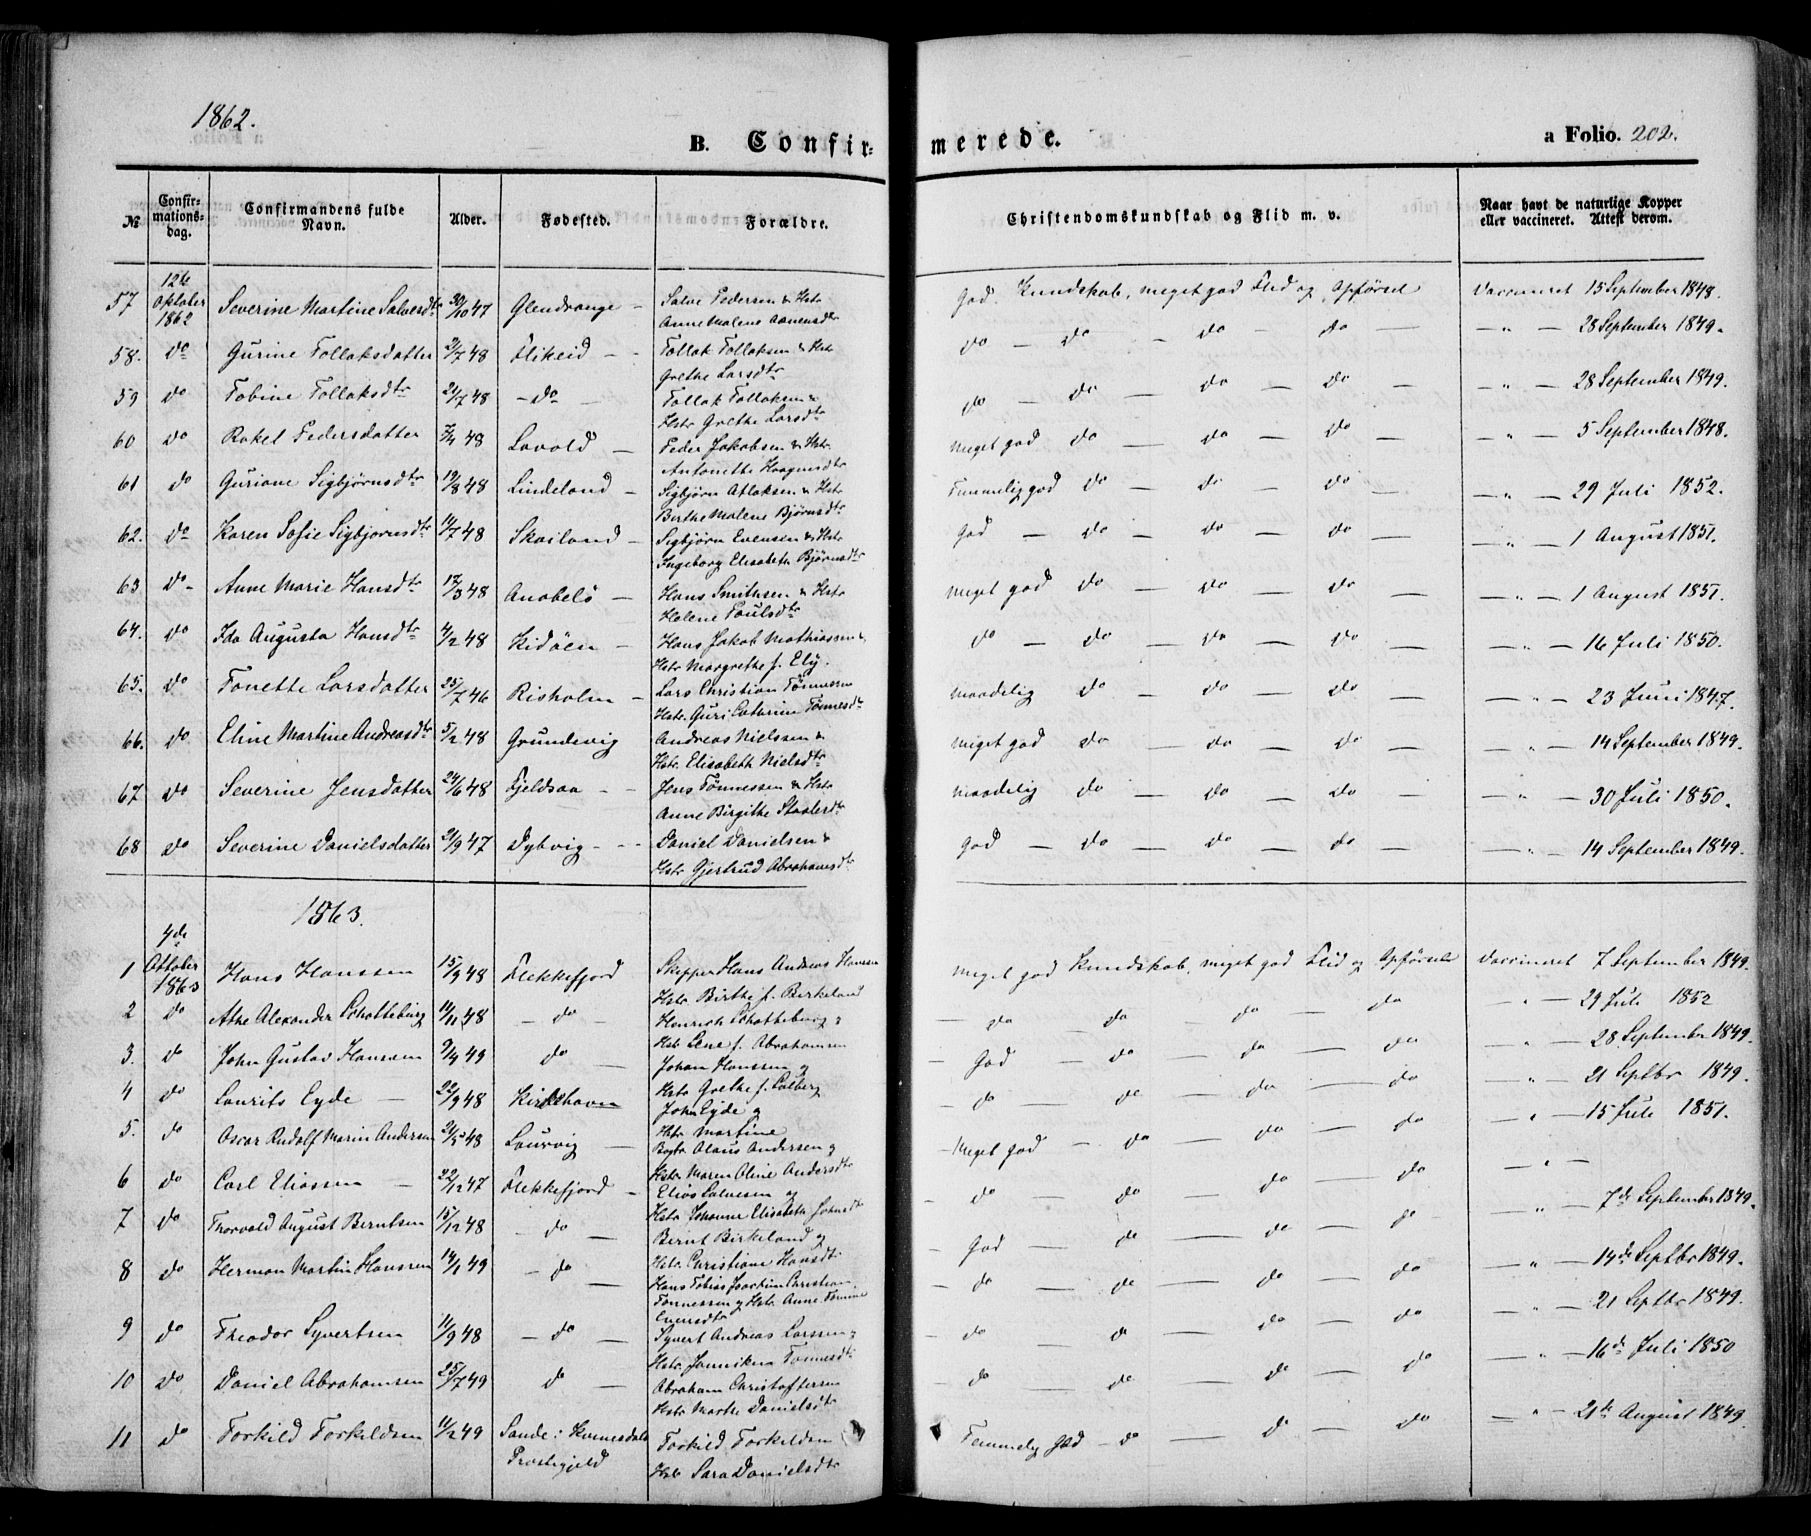 1862.
B. Confir-
merede.
a Folio. 202.
№
Confir-
mations-
dag.
Confirmandens fulde
Navn.
Alder.
Fødested.
Forældre.
Christendomskundskab og Flid m. v.
Naar havt de naturlige Kopper
eller vaccineret. Attest derom.
57 12te Oktober 1862 Severine Martine Salvesdtr 30/10 47 Glendrange - Salve Pedersen & Hstr Anne Malene Aanensdtr God Kundskab, meget god Flid og Opførsel Vaccineret 15 September 1848.
58. do Gurine Tollaksdatter 2/7 48 Flikeid - - Tollak Tollaksen & Hstr Grethe Larsdtr do - do - do - do - " - 28 September 1849.
59 do Tobine Tollaksdtr 2/7 48 - do - Tollak Tollaksen & Hstr Grethe Larsdtr do - do - do - do - " - 28 September 1849.
60 do Rakel Pedersdatter 48 Lavold - Peder Jakobsen & Hstr Antonette Haagensdtr meget god do - do - do - " - 5 September 1848.
61 do Guriane Sigbjørnsdtr 19/8 48 Lindeland - Sigbjørn Atlaksen & Hstr Birthe Malene Bjørnsdtr Temmelig god do - do - do - " - 29 Juli 1852.
62. do Karen Sofie Sigbjørnsdtr 11/7 48 Skailand - Sigbjørn Evensen & Hstr Ingeborg Elisabeth Bjørnsdtr God - do - do - do - " - 1 August 1851.
63 do - Anne Marie Hansdtr 17/3 48 Anabelø - Hans Smithsen & Hstr Helene Poulsdtr meget god do - do - do - " - 1 August 1851.
64. do Ida Augusta Hansdtr 4/2 48 Kidøen - Hans Jakob Mathiassen & Hstr Margrethe f. Ely. do - do - do - do - " - 16 Juli 1850.
65. do Tonette Larsdatter 25/7 46 Risholm - Lars Christian Tønnesen Hstr. Guri Cathrine Tønnesdtr maadelig do - do - do - " - 23 Juni 1847.
66. do Eline Martine Andreasdtr 5/2 48 Grundevig Andreas Nielssen & Hstr. Elisabeth Nielsdtr meget god do - do - do - " - 14 September 1849.
67 do Severine Jensdatter 24/6 48 Fjeldsaa - - Jens Tønnessen & Hstr Anne Birgithe maadelig do - do - do - " - 30 Juli 1850.
68 do Severine Danielsdatter 21/9 47 Dybvig - - - Daniel Danielsen & Hstr Gjertrud Abrahamsdtr God - do - do - do - " - 14 September 1849.
1863.
1 4de Oktober 1863 Hans Hanssen 15/9 48 Flekkefjord Skipper Hans Andreas Hanssen Hstr Birthe f. Birkeland meget god Kundskab, meget god Flid og Opførsel Vaccineret 7 September 1849.
2 do Athe Alexander Schotteburg 11/11 48 - do - Henrich Schotteburg & Hstr Lene f. Abrahamsen - do - do - do - do - " - 29 Juli 1852
3. do John Gustav Hanssen 9/4 49 do - Johan Hanssen og Hstr Grethe f. Salberg - God - do - do - do - " - 28 September 1849.
4 do Laurits Eyde - 22/9 48 Kirkehavn John Eyde og Hstr Martine - do - do - do - do " - 21 Septbr 1849.
5. do Oscar Rudolf Marin Andersen 21/5 48 Laurvig - Olaus Andersen og Hstr Maren Oline Andersdtr - Meget god - do - do - do - " - 15 Juli 1851.
6 do Carl Eliassen - 22/12 47 Flekkefjord - Elias Salvesen og Hstr Johanne Elisabeth - do - do - do - do - " -
7 do Thorvald August Berntsen 15/12 48 - do - Bernt Birkeland og Hstr Christiane Hansdtr - God - do - do - do - " - 7de September 1849.
8 do Herman Martin Hanssen 14/1 49 - do - Hans Tobias Joachim Christian Tønnessen og Hstr Anne Tomine Evensdtr - do - do - do - do - " - 14de Septbr 1849.
9 do Theodor Syvertsen 11/9 48 - do - Syvert Andreas Larssen og Hstr. Jannikea Tønnesdtr - do do - do - do - " - 21 Septbr 1849.
10 do Daniel Abrahamsen 25/7 49 do - Abraham Christoffersen Hstr Marthe Danielsdtr - do - do - do - do - " - 16de Juli 1850
11 do Torkild Torkildsen 11/2 49 Sande i Kvinesdals Prestegjeld Torkild Torkildsen Hstr Sara Danielsdtr Temmelig god - do - do - do - " - 21de August 1849.